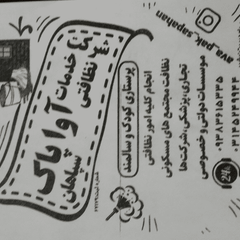 شرکت خدمات
نظافتی
آوا پاک
سپاهان
ava_pak_sapahan
پرستاری کودک و سالمند
انجام کلیه امور نظافتی
نظافت مجتمع های مسکونی
تجاری، پزشکی، شرکت‌ها
موسسات دولتی و خصوصی